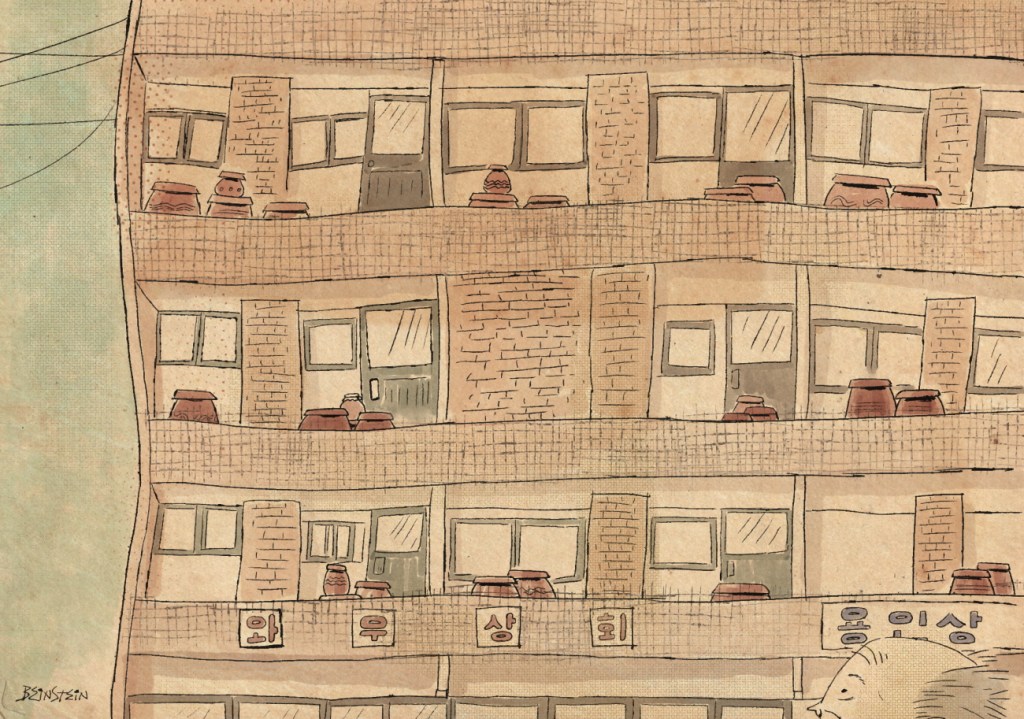 와우상회
용인상
BEINSTEIN